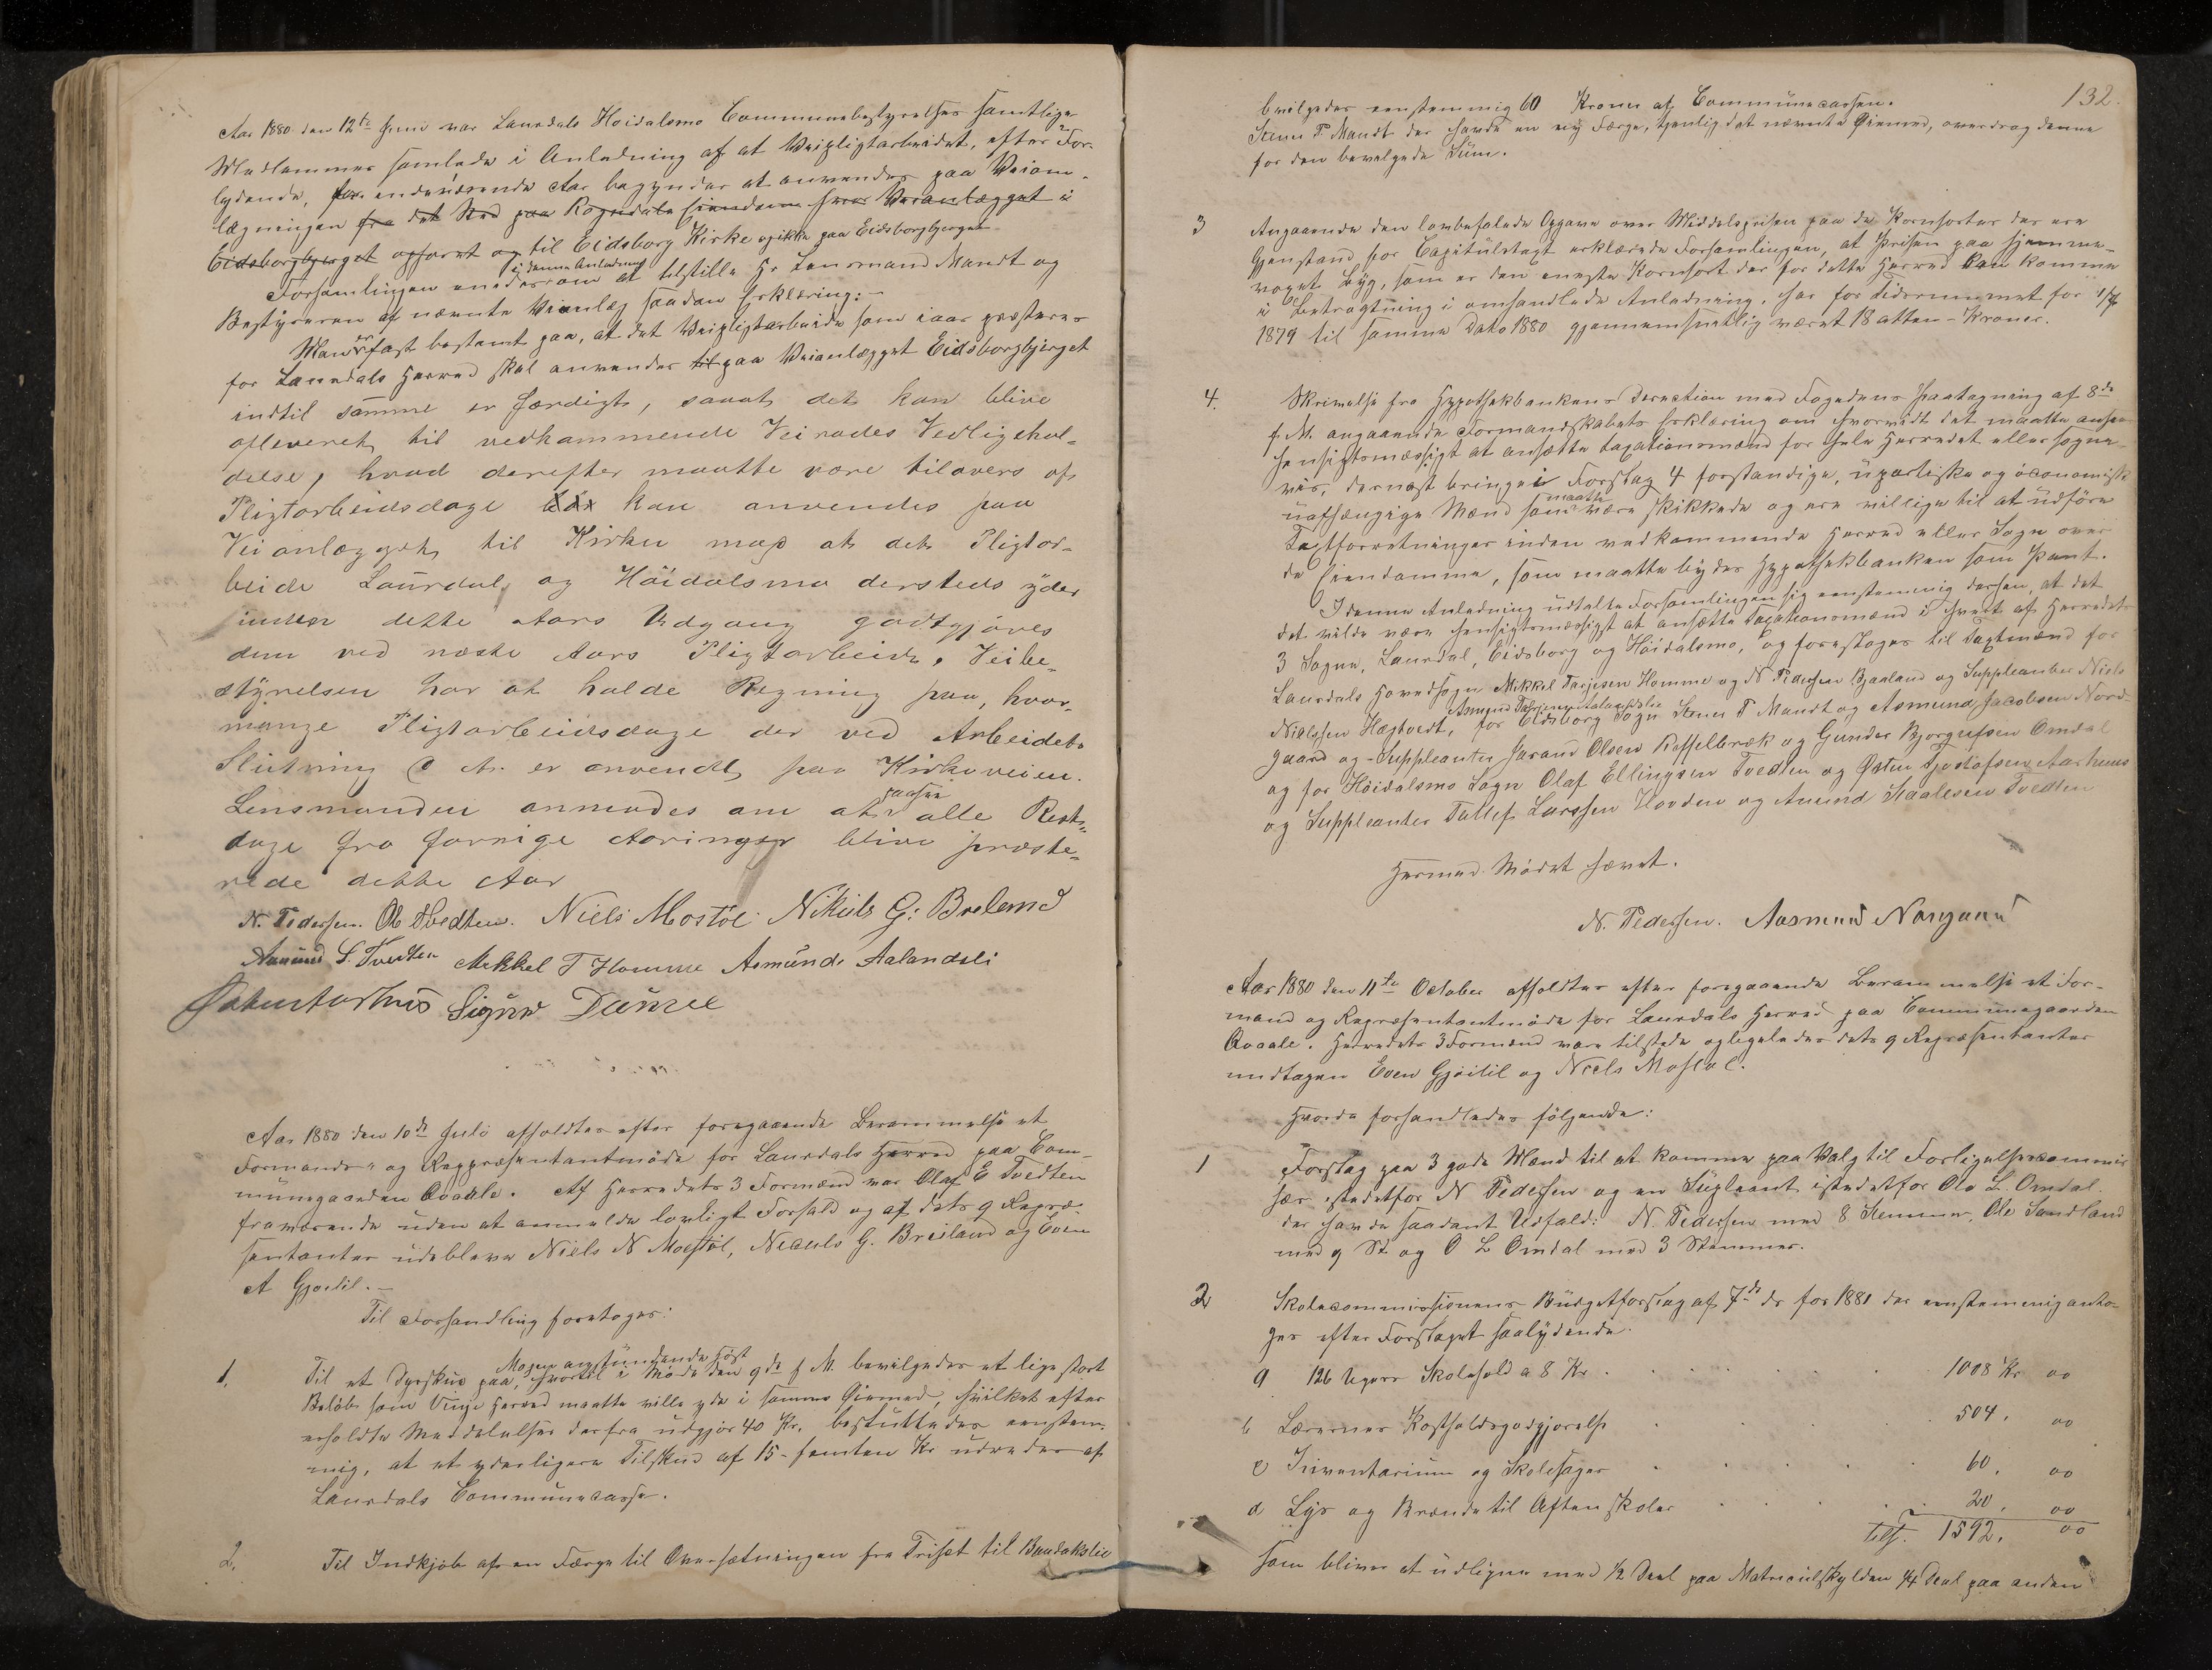 Aar 1880 den 12te Juni var Laurdals Hoidalsmo Communebestyrelses samtlige
Medlemmer samlede i Anledning af at Veipligtarbeidet, efter For-
lydende, for indeværende Aar begyndes at anvendes paa Veiom-
lægningen fra det Sted paa Rogndals Eiendom hvor Veianlægget i
Eidsborgbjerget ophørt og til Eidsborg Kirke og ikke paa Eidsborgbjerget
Forsamlingen enedes om i denne Anledning at tilstille Hr Lensmand Mandt og
Bestyreren af nævnte Veianlæg saadan Erklæring:-
Man er fast bestemt paa, at det Veipligtarbeide som iaar præsteres
for Laurdals Herred skal anvendes til paa Veianlægget Eidsborgbjerget
indtil samme er færdigt, saavt det kan blive
afleveret til vedkommende Veirodes Vedligehol-
delse, hvad derefter maatte være tilovers af
Pligtarbeidsdage kan anvendes paa
Veianlægget til Kirken mod at det Pligtar-
beide Laurdal og Höidalsmo dersteds yder
inden dette Aars Udgang godtgjøres
dem ved næste Aars Pligtarbeide. Veibe-
styrelsen har at holde Regning paa, hvor-
mange Pligtarbeidsdage der ved Arbeidets
Slutning d. A. er anvendt paa Kirkeveien.
Lensmanden anmodes om at paase alle Rest-
dage fra forrige Aaringer blive præste-
rede dette Aar
N. Pedersen. Ole Tvedten. Niels Mostöl Nikuls G: Breland
Aanund S. Tvedten Mikkel T Homme Asmünd. Aalandsli
Østen Aarhus Sigurd Dalen
Aar 1880 den 10de Juli afholdtes efter foregaaende Berammelse et
Formands- og Repræsentantmöde for Laurdals Herred paa Com-
munegaarden Qvaale. Af Herredets 3 Formænd var Olaf E Tvedten
fraværende uden at anmelde lovligt Forfald og af dets 9 Repræ-
sentanter udebleve Niels N Mostöl, Niculs G. Breiland og Even
A Gjøitil.-
Til Forhandling foretoges:
1. Til et Dyrskue paa Mogen anstundende Höst, hvortil i Möde den 9de f. M. bevilgedes et lige stort
Beløb som Vinje Herred maatte ville yde i samme Øiemed, hvilket efter
erholdte Meddelelser derfra udgjør 40 Kr. besluttedes eenstem-
mig, at et yderligere Tilskud af 15 - femten Kr udredes af
Laurdals Communecasse.
2. Til Indkjøb af en Færge til Oversætningen fra Triset til Bandakslie
132.
bevilgedes eenstemmig 60 Kroner af Communecassen.
Steen T. Mandt der havde en ny Færge, tjenlig det nævnte Øiemed, overdrog denne
for den bevilgede Sum.
3 Angaaende den lovbefalede Opgave over Middelprisen paa de Kornsorter der ere
Gjenstand for Capitulstaxt erklærede Forsamlingen, at Prisen paa Hjemme-
voxet Byg, som er den eneste Kornsort der for dette Herred kan komme
i Betragtning i omhandlede Anledning, har for Tidsrummet fra 1/7
1879 til samme Dato 1880 gjennemsnitlig været 18 atten - Kroner.
4. Skrivelse fra Hypothekbankens Direction med Fogdens Paategning af 8de
f. M. angaaende Formandskabets Erklæring om hvorvidt det maatte ansees
hensigtsmæssigt at ansætte Taxationsmænd for hele Herredet eller Sogne-
vis, dernæst bringe i Forslag 4 forstandige, upartiske og øconomisk
uafhængige Mænd som maatte være skikkede og ere villige til at udføre
Taxtforretninger inden vedkommende Herred eller Sogn over
de Eiendomme, som maatte bydes Hypothekbanken som Pant.
I denne Anledning udtalte Forsamlingen sig eenstemmig derhen, at det
det vilde være hensigtsmæssigt at ansætte Taxationsmænd i hvert af Herredets
3 Sogne, Laurdal, Eidsborg og Höidalsmo, og foresloges til Taxtmænd for
Laurdals Hovedsogn Mikkel Tarjesen Homme og N Pedersen Bjaaland og Suppleanter Niels
Nielssen Hægtvedt, Asmund Aalandslie for Eidsborg Sogn Steen T Mandt og Asmund Jacobsen Nord-
gaard og Suppleanter Jarand Olsen og Gunder Bjorgufsen Omdal
og for Höidalsmo Sogn Olaf Ellingsen Tvedten og Østen Gjostofsen Aarhuus
og Suppleanter Tallef Larssen Hovden og Anund Staalesen Tvedten
Hermed Mödet hævet.
N. Pedersen. Aasmund Norgaard
Aar 1880 den 11te October afholdtes efter foregaaende Berammelse et For-
mand og Repræsentantmöde for Laurdals Herred paa Communegaarden
Qvaale. Herredets 3 Formænd vare tilstede og ligeledes dets 9 Repræsentanter
undtagen Even Gjöitil og Niels Mostöl.
Hvorda forhandledes følgende:
1 Forslag paa 3 gode Mænd til at komme paa Valg til Forligelsescommis-
sær istedetfor N Pedersen og en Supleant istedetfor Ole L. Omdal.
der havde saadant Udfald: N. Pedersen med 8 Stemmer, Ole Sandland
med 9 St og O L Omdal med 3 Stemmer.
2 Skolecommissionens Budgetforslag af 7de ds for 1881 der eenstemmig anto-
ges efter Forslaget saalydende.
a 126 Ugers Skolehold a 8 Kr . . . . 1008 Kr 00
b Lærernes Kostholdsgodtgjørelse . . . 504. 00
c Inventarium og Skolesager . . . . 60. 00
d Lys og Brænde til Aftenskoler . . . 20. 00
tils. 1592. 00
som bliver at udligne med 1/2 Deel paa Matriculskylden 1/4 Deel paa anden